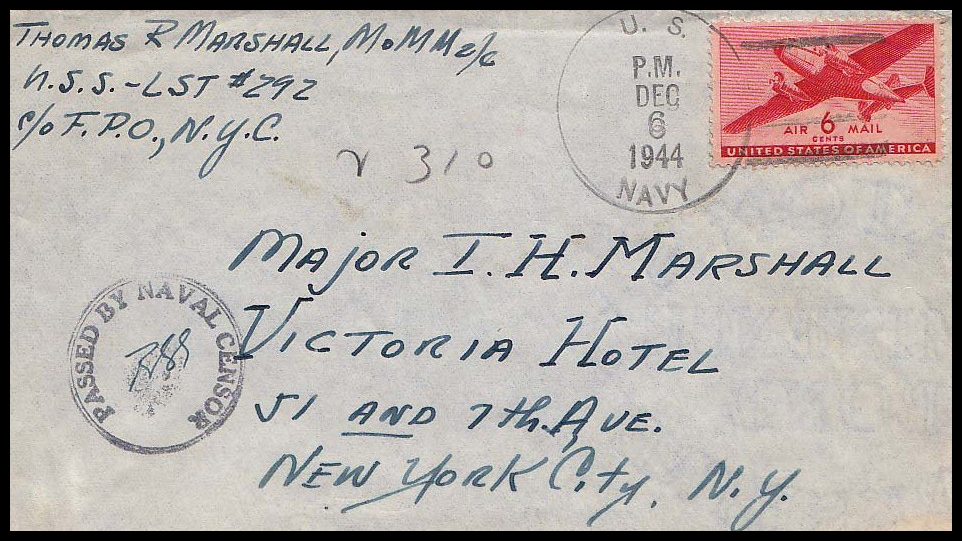 THOMAS R MARSHALL, MoMM2/c
U.S.S.-LST #292
c/o F.P.O., N.Y.C.
310
U. S.
P.M.
DEC
6
1944
NAVY
AIR 6 MAIL
CENTS
UNITED STATES OF AMERICA
MAJOR I. H. MARSHALL
VICTORIA HOTEL
51 AND 7th AVE.
NEW YORK City, N.Y.
PASSED BY NAVAL CENSOR